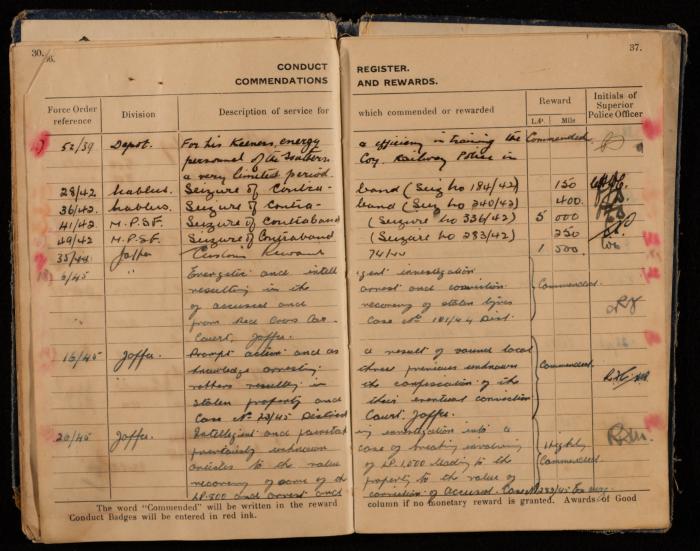 30.
36.
37.
CONDUCT REGISTER.
COMMENDATIONS AND REWARDS.
Force Order reference
Division
Description of service for which commended or rewarded
Reward
L.P. Mils
Initials of Superior Police Officer
52/39 Depot. For his Keeness, energy & efficiency in training the Commended
personnel of the Southern Coy. Railway Police in
a very limited period.
28/42 Nablus. Seizure of Contra-band (Seiz No 184/42) 150
36/42 Nablus. Seizure of Contra-band (Seiz No 240/42) 400.
41/42 M.P.S.F. Seizure of Contraband (Seizure No 336/42) 5 000
49/42 M.P.S.F. Seizure of Contraband (Seizure No 283/42) 250
35/44 Jaffa Customs Reward 74/44 1 500.
6/45 " Energetic and intelligent investigation
resulting in the arrest and conviction Commended.
of accused and recovery of stolen tyres
from Red Cross Car - Case No 181/44 Dist.
Court, Jaffa.
16/45 Jaffa. Prompt action and as a result of sound local
knowledge arresting three previous unknown Commended.
robbers resulting in the confiscation of the
stolen property and their eventual conviction
Case No 23/45 District Court. Jaffa.
20/45 Jaffa. Intelligent and painstaking investigation into a
previously unknown case of breaking involving Highly
articles to the value of LP.1,500 leading to the Commended.
recovery of some of the property to the value of
LP.800 and arrest and conviction of accused. Case No 283/45
The word "Commended" will be written in the reward column if no monetary reward is granted. Awards of Good
Conduct Badges will be entered in red ink.